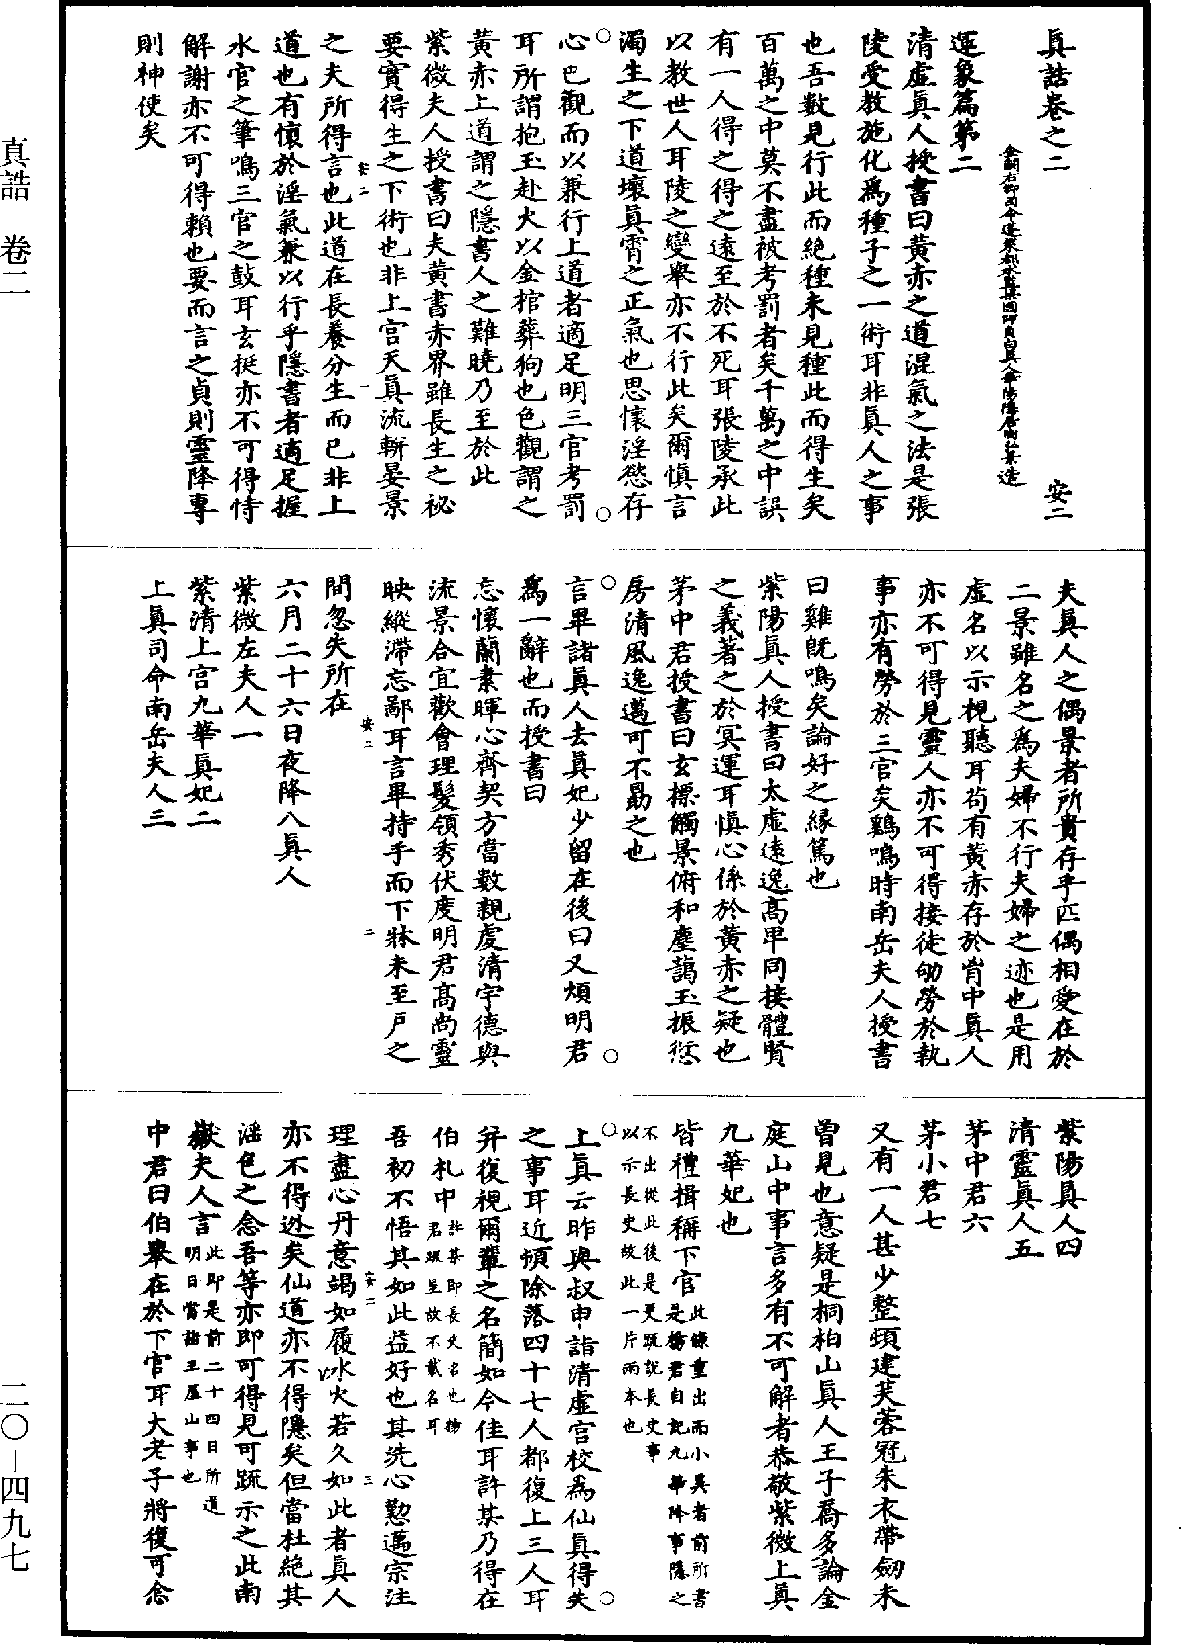 真誥卷之二
安二
金闕右卿司命蓬萊都水監梁國師貞白真人華陽隱居陶弘景造
運象篇第二
清虛真人授書曰黃赤之道混氣之法是張
陵受教施化爲種子之一術耳非真人之事
也吾數見行此而絕種未見種此而得生矣
百萬之中莫不盡被考罰者矣千萬之中誤
有一人得之得之遠至於不死耳張陵承此
以教世人耳陵之變舉亦不行此矣爾慎言
濁生之下道壞真霄之正氣也思懷淫慾存
心色觀而以兼行上道者適足明三官考罰
耳所謂抱玉赴火以金棺葬狗也色觀謂之
黃赤上道謂之隱書人之難曉乃至於此
紫微夫人授書曰夫黃書赤界雖長生之祕
要實得生之下術也非上宮天真流軿晏景
之夫所得言也此道在長養分生而已非上
安二
一
道也有懷於淫氣兼以行乎隱書者適足握
水官之筆鳴三官之鼓耳玄挺亦不可得恃
解謝亦不可得賴也要而言之貞則靈降專
則神使矣
夫真人之偶景者所貴存乎匹偶相愛在於
二景雖名之爲夫婦不行夫婦之迹也是用
虛名以示視聽耳苟有黃赤存於胷中真人
亦不可得見靈人亦不可得接徒劬勞於執
事亦有勞於三官矣鷄鳴時南岳夫人授書
曰雞既鳴矣論好之緣篤也
紫陽真人授書曰太虛遠逸高卑同接體賢
之義著之於冥運耳慎心係於黃赤之疑也
茅中君授書曰玄標觸景俯和塵藹玉振愆
房清風逸邁可不勗之也
言畢諸真人去真妃少留在後曰又煩明君
爲一辭也而授書曰
忘懷蘭素暉心齊契方當數親虔清宇德與
流景合宜歡會理髮領秀伏度明君高尚靈
映縱滯忘鄙耳言畢持手而下牀未至戶之
間忽失所在
安二
二
六月二十六日夜降八真人
紫微左夫人一
紫清上宮九華真妃二
上真司命南岳夫人三
紫陽真人四
清靈真人五
茅中君六
茅小君七
又有一人甚少整頓建芙蓉冠朱衣帶劒未
曾見也意疑是桐柏山真人王子喬多論金
庭山中事言多有不可解者恭敬紫微上真
九華妃也
皆禮揖稱下官此條重出而小異者前所書是楊君自記九華降事隱之
不出從此後是更疏說長史事以示長史故此一片兩本也
上真云昨與叔申詣清虛宮校爲仙真得失
之事耳近頓除落四十七人都復上三人耳
并復視爾輩之名簡如今佳耳許某乃得在
伯札中許某即長史名也楊君疏呈故不載名耳
吾初不悟其如此益好也其洗心懃邁宗注
理盡心丹意竭如履冰火若久如此者真人
安二
三
亦不得逃矣仙道亦不得隱矣但當杜絕其
淫色之念吾等亦即可得見可疏示之此南
嶽夫人言此即是前二十四日所道明日當詣王屋山事也
中君曰伯舉在於下官耳大老子將復可念
真誥 卷二
二〇—四九七